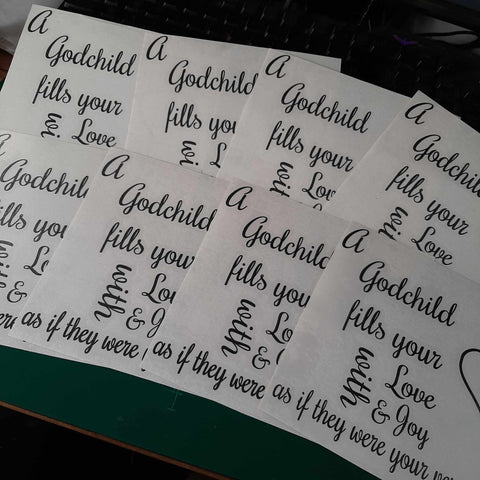 A
Godchild
fills your
Love
A
Godchild
fills you
A
Godchild
fills your
with
A
Godchild
fills your
Love
Godchild
with
&
A
Godchild
fills your
with
& Joy
as if they were
A
Godchild
fills you
with
&
as if they were
A
Godchild
fills your
with
Love
& Joy
as if they were your